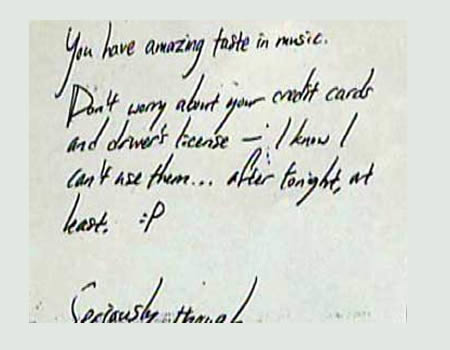 You have amazing taste in music.
Don't worry about your credit cards
and driver's license – I know I
can't use them... after tonight, at
least. :P
Seriously though